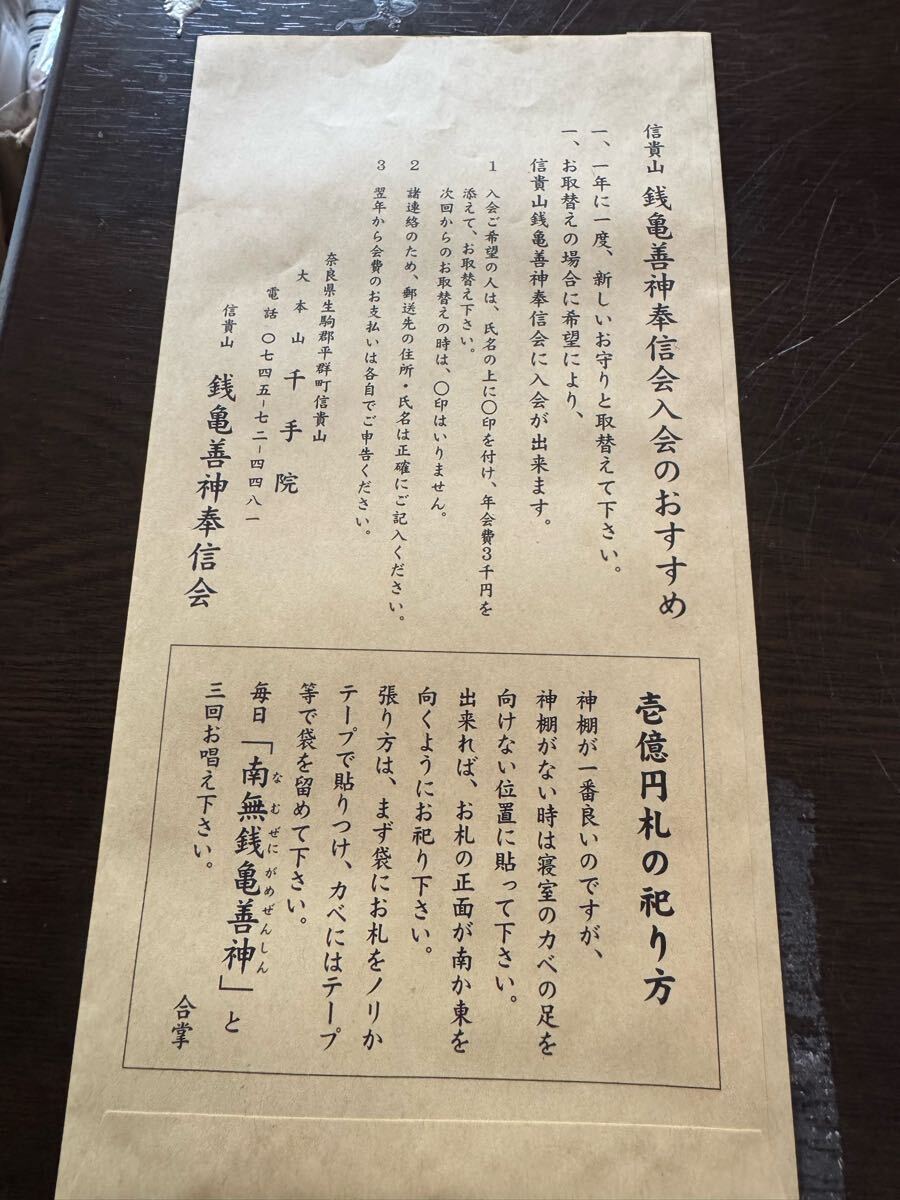 信貴山 銭亀善神奉信会入会のおすすめ
一、一年に一度、新しいお守りと取替えて下さい。
一、お取替えの場合に希望により、
信貴山銭亀善神奉信会に入会が出来ます。
1 入会ご希望の人は、氏名の上に〇印を付け、年会費3千円を
添えて、お取替え下さい。
次回からのお取替えの時は、〇印はいりません。
2 諸連絡のため、郵送先の住所・氏名は正確にご記入ください。
3 翌年から会費のお支払いは各自でご申告ください。
奈良県生駒郡平群町信貴山
大本山 千手院
電話 〇七四五-七二-四四八一
信貴山 銭亀善神奉信会
壱億円札の祀り方
神棚が一番良いのですが、
神棚がない時は寝室のカベの足を
向けない位置に貼って下さい。
出来れば、お札の正面が南か東を
向くようにお祀り下さい。
張り方は、まず袋にお札をノリか
テープで貼りつけ、カベにはテープ
等で袋を留めて下さい。
毎日「南無銭亀善神」と
なむぜにがめぜんしん
三回お唱え下さい。
合掌